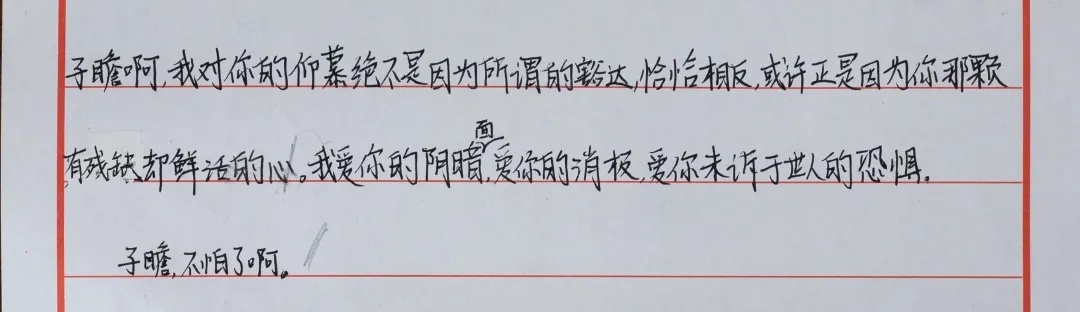 子瞻啊，我对你的仰慕绝不是因为所谓的豁达，恰恰相反，或许正是因为你那颗
有残缺却鲜活的心。我爱你的阴暗面，爱你的消极，爱你未诉于世人的恐惧。
子瞻，不怕了啊。